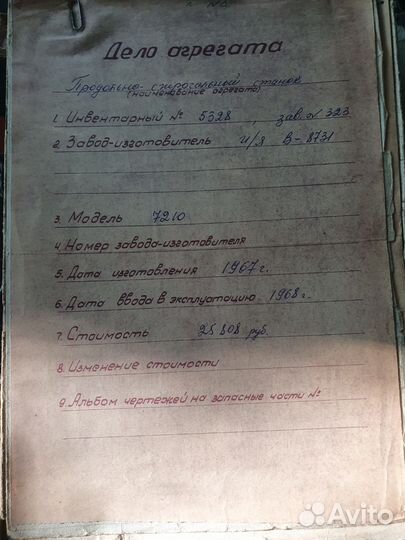 Дело агрегата
Продольно-строгальный станок
(наименование агрегата)
1. Инвентарный № 5328, зав. № 323
2. Завод-изготовитель п/я В-8731
3. Модель 7210
4. Номер завода-изготовителя
5. Дата изготовления 1967 г.
6. Дата ввода в эксплуатацию 1968 г.
7. Стоимость 25 808 руб.
8. Изменение стоимости
9. Альбом чертежей на запасные части №
Avito